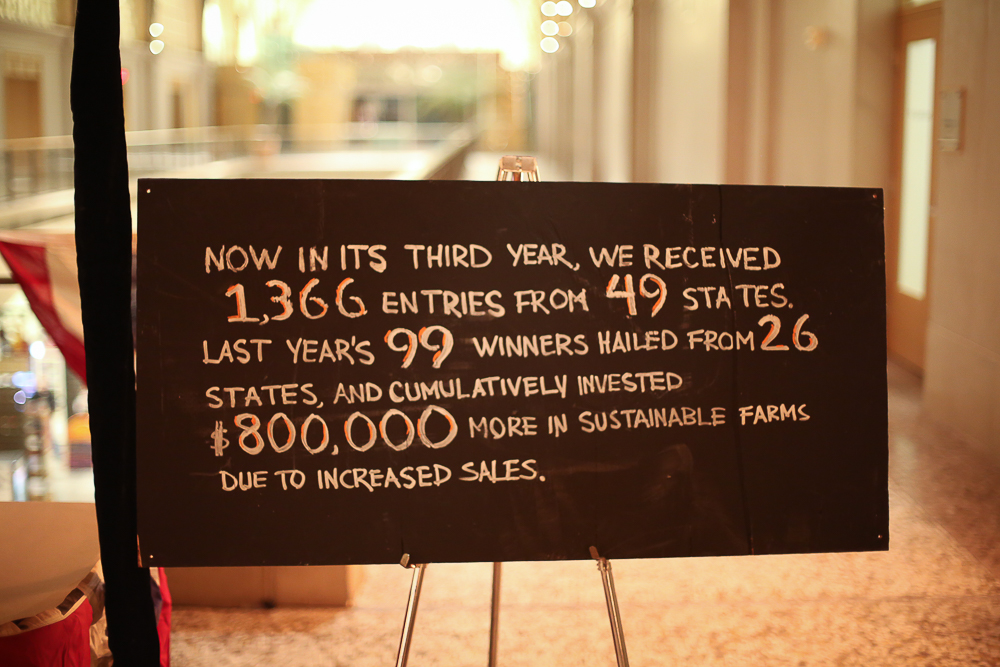 NOW IN ITS THIRD YEAR, WE RECEIVED
1,366 ENTRIES FROM 49 STATES.
LAST YEAR'S 99 WINNERS HAILED FROM 26
STATES, AND CUMULATIVELY INVESTED
$800,000 MORE IN SUSTAINABLE FARMS
DUE TO INCREASED SALES.